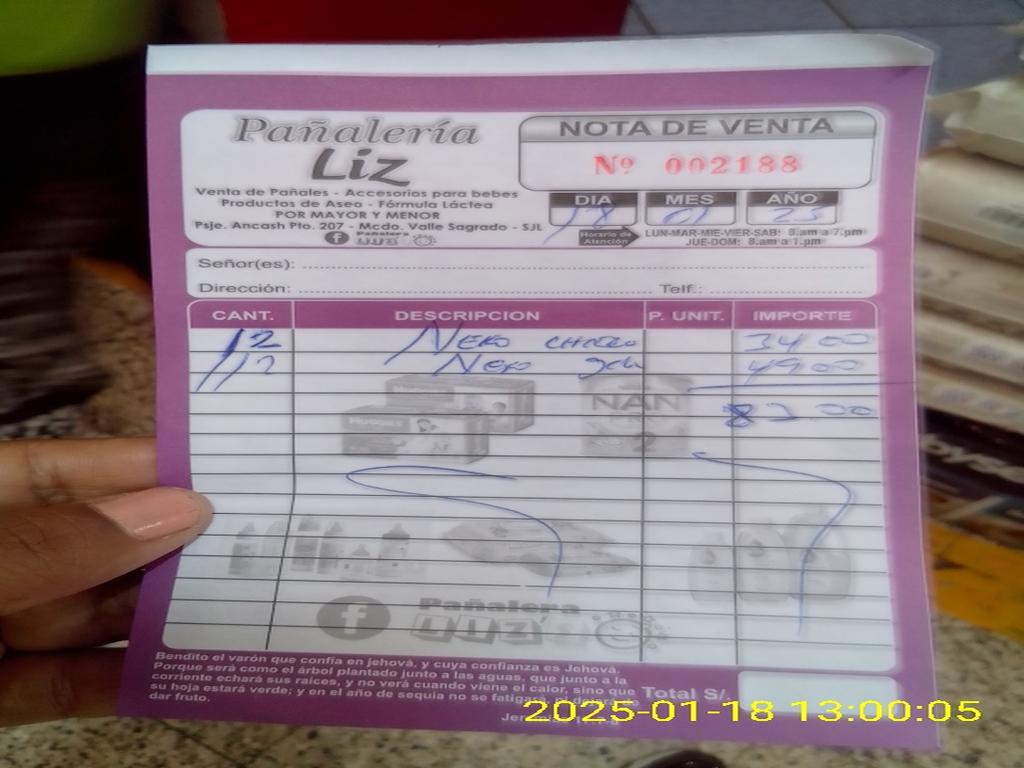 Pañalería
Liz
Venta de Pañales - Accesorios para bebes
Productos de Aseo - Fórmula Láctea
POR MAYOR Y MENOR
Psje. Ancash Pto. 207 - Mcdo. Valle Sagrado - SJL
Pañalera LIZ
NOTA DE VENTA
Nº 002188
DIA MES AÑO
18 01 25
Horario de Atención LUN-MAR-MIE-VIER-SAB: 8.am a 7.pm
JUE-DOM: 8.am a 1.pm
Señor(es):
Dirección: Telf.:
CANT. DESCRIPCION P. UNIT. IMPORTE
12 34 00
12 4900
00
HUGGIES NAN
HUGGIES 2
Pañalera
LIZ
Bendito el varón que confía en jehová, y cuya confianza es Jehová.
Porque será como el árbol plantado junto a las aguas, que junto a la
corriente echará sus raíces, y no verá cuando viene el calor, sino que
su hoja estará verde; y en el año de sequia no se fatigará, ni dejará de
dar fruto.
Total S/.
2025-01-18 13:00:05